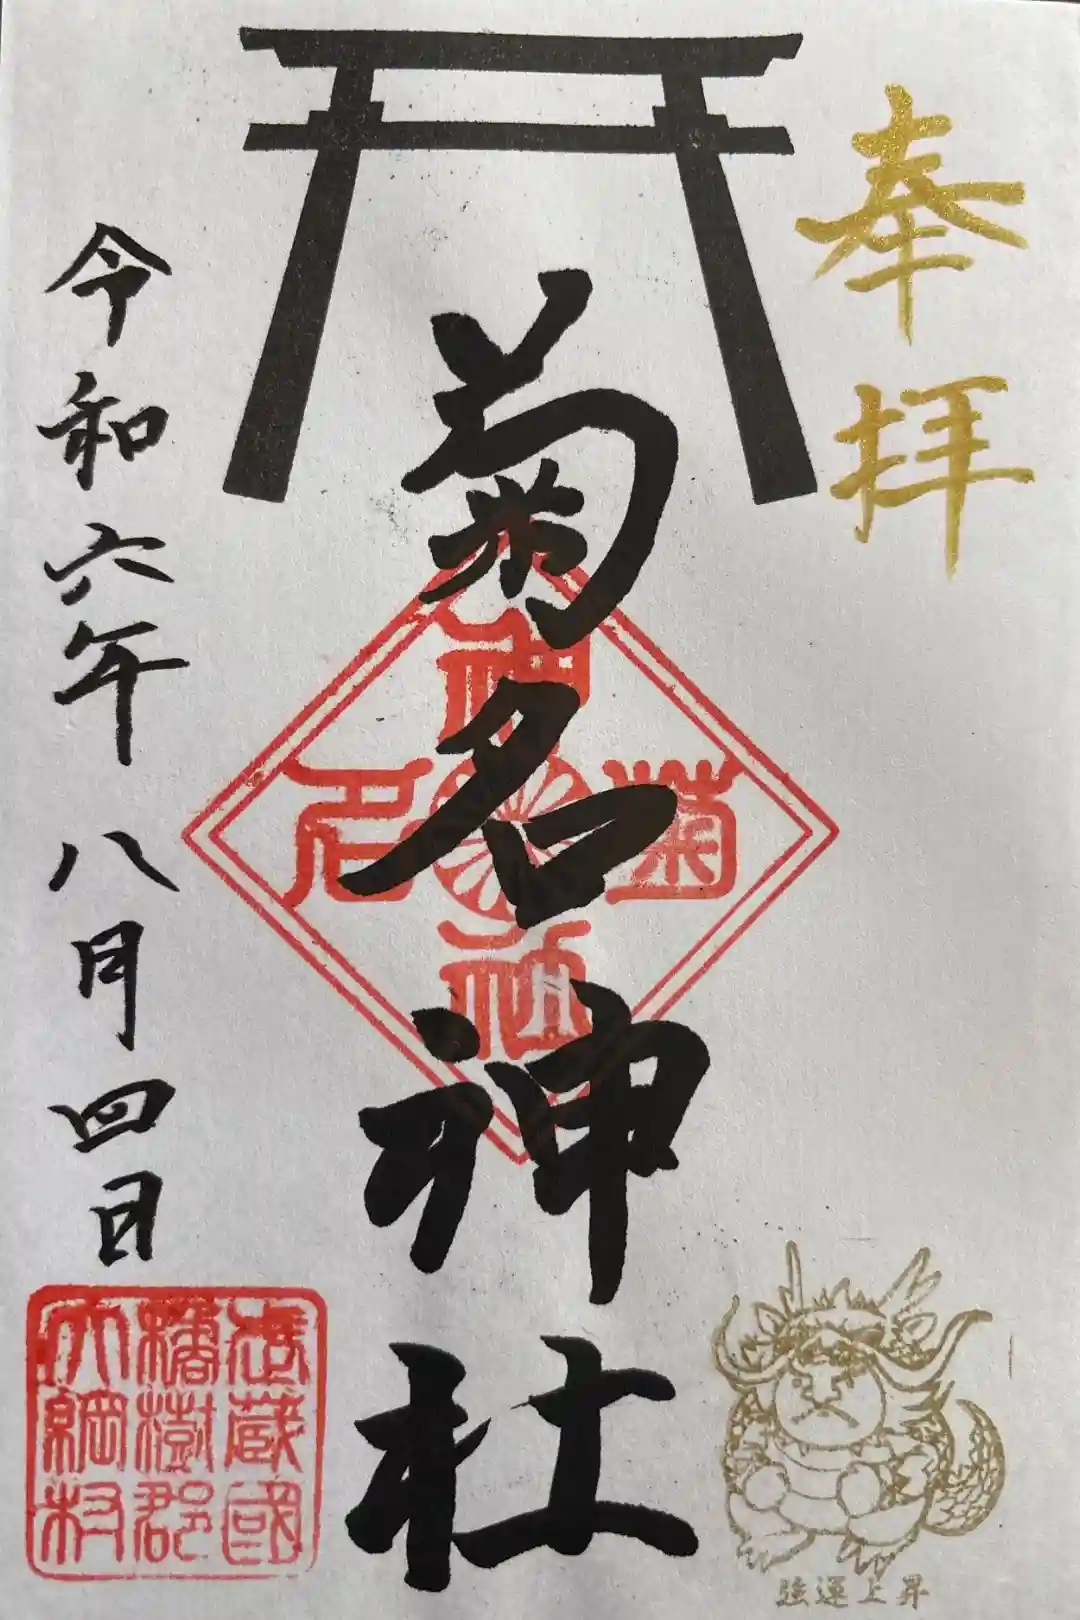 奉拝
菊名神社
菊名神社
令和六年八月四日
武蔵國
橘樹郡
大綱村
強運上昇